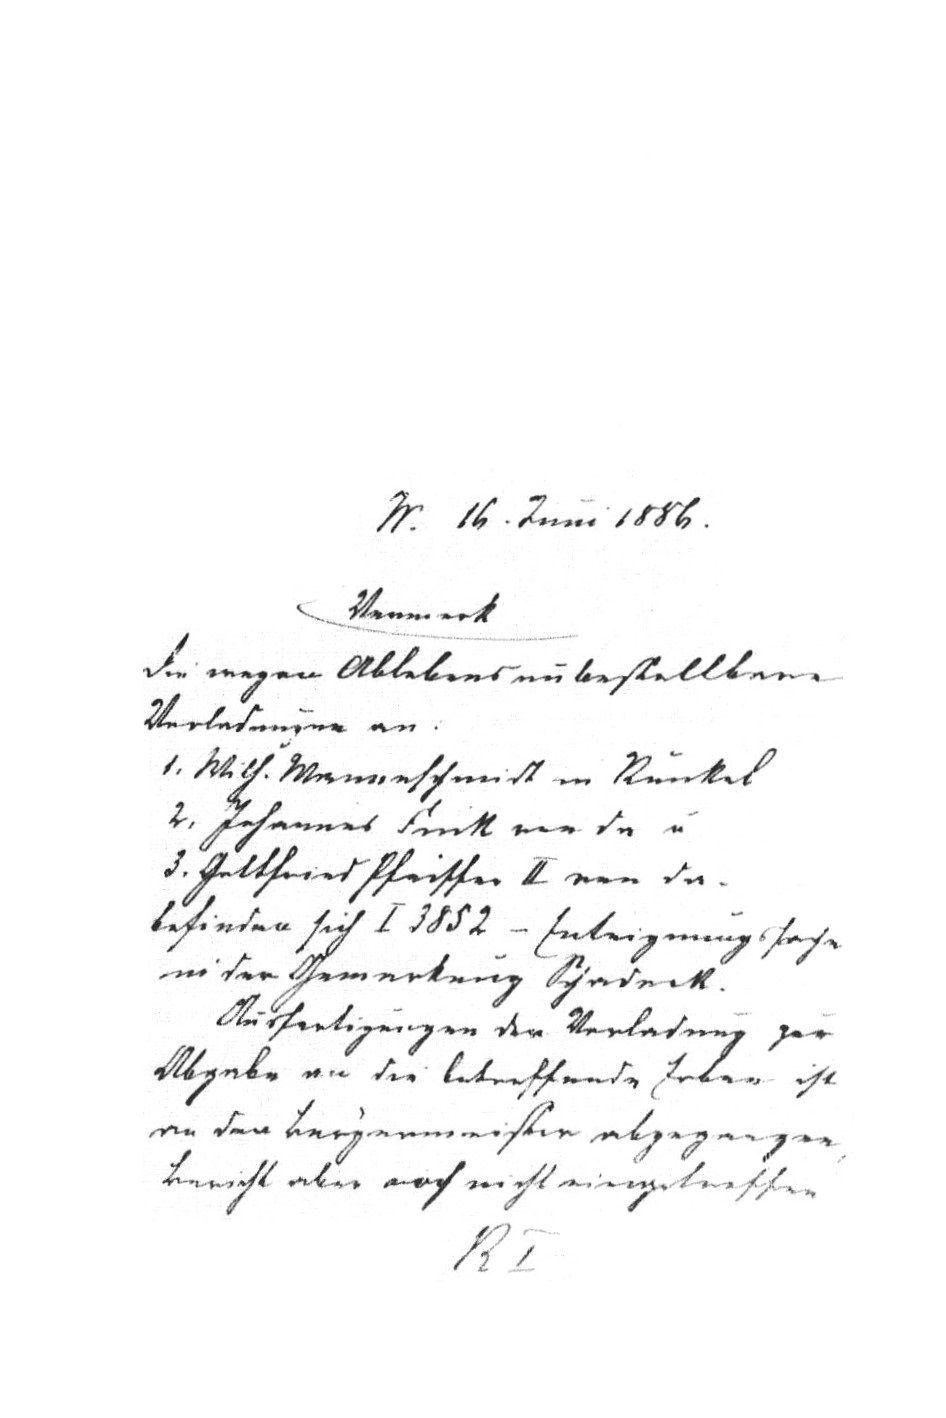 W. 16. Juni 1886.
Vermerk
Die wegen Ablebens unbestellbare
Vorladungen an:
1. Wilh. Mannschmidt in Runkel
2. Johannes Finck von da u
3. Gottfried Pfeiffer II von da.
befinden sich I 3852 – Enteignungssache
in der Gemarkung Schadeck.
Ausfertigungen der Vorladung zur
Abgabe an die betreffende Erben ist
an den Bürgermeister abgegangen,
Bericht aber noch nicht eingetroffen
R I